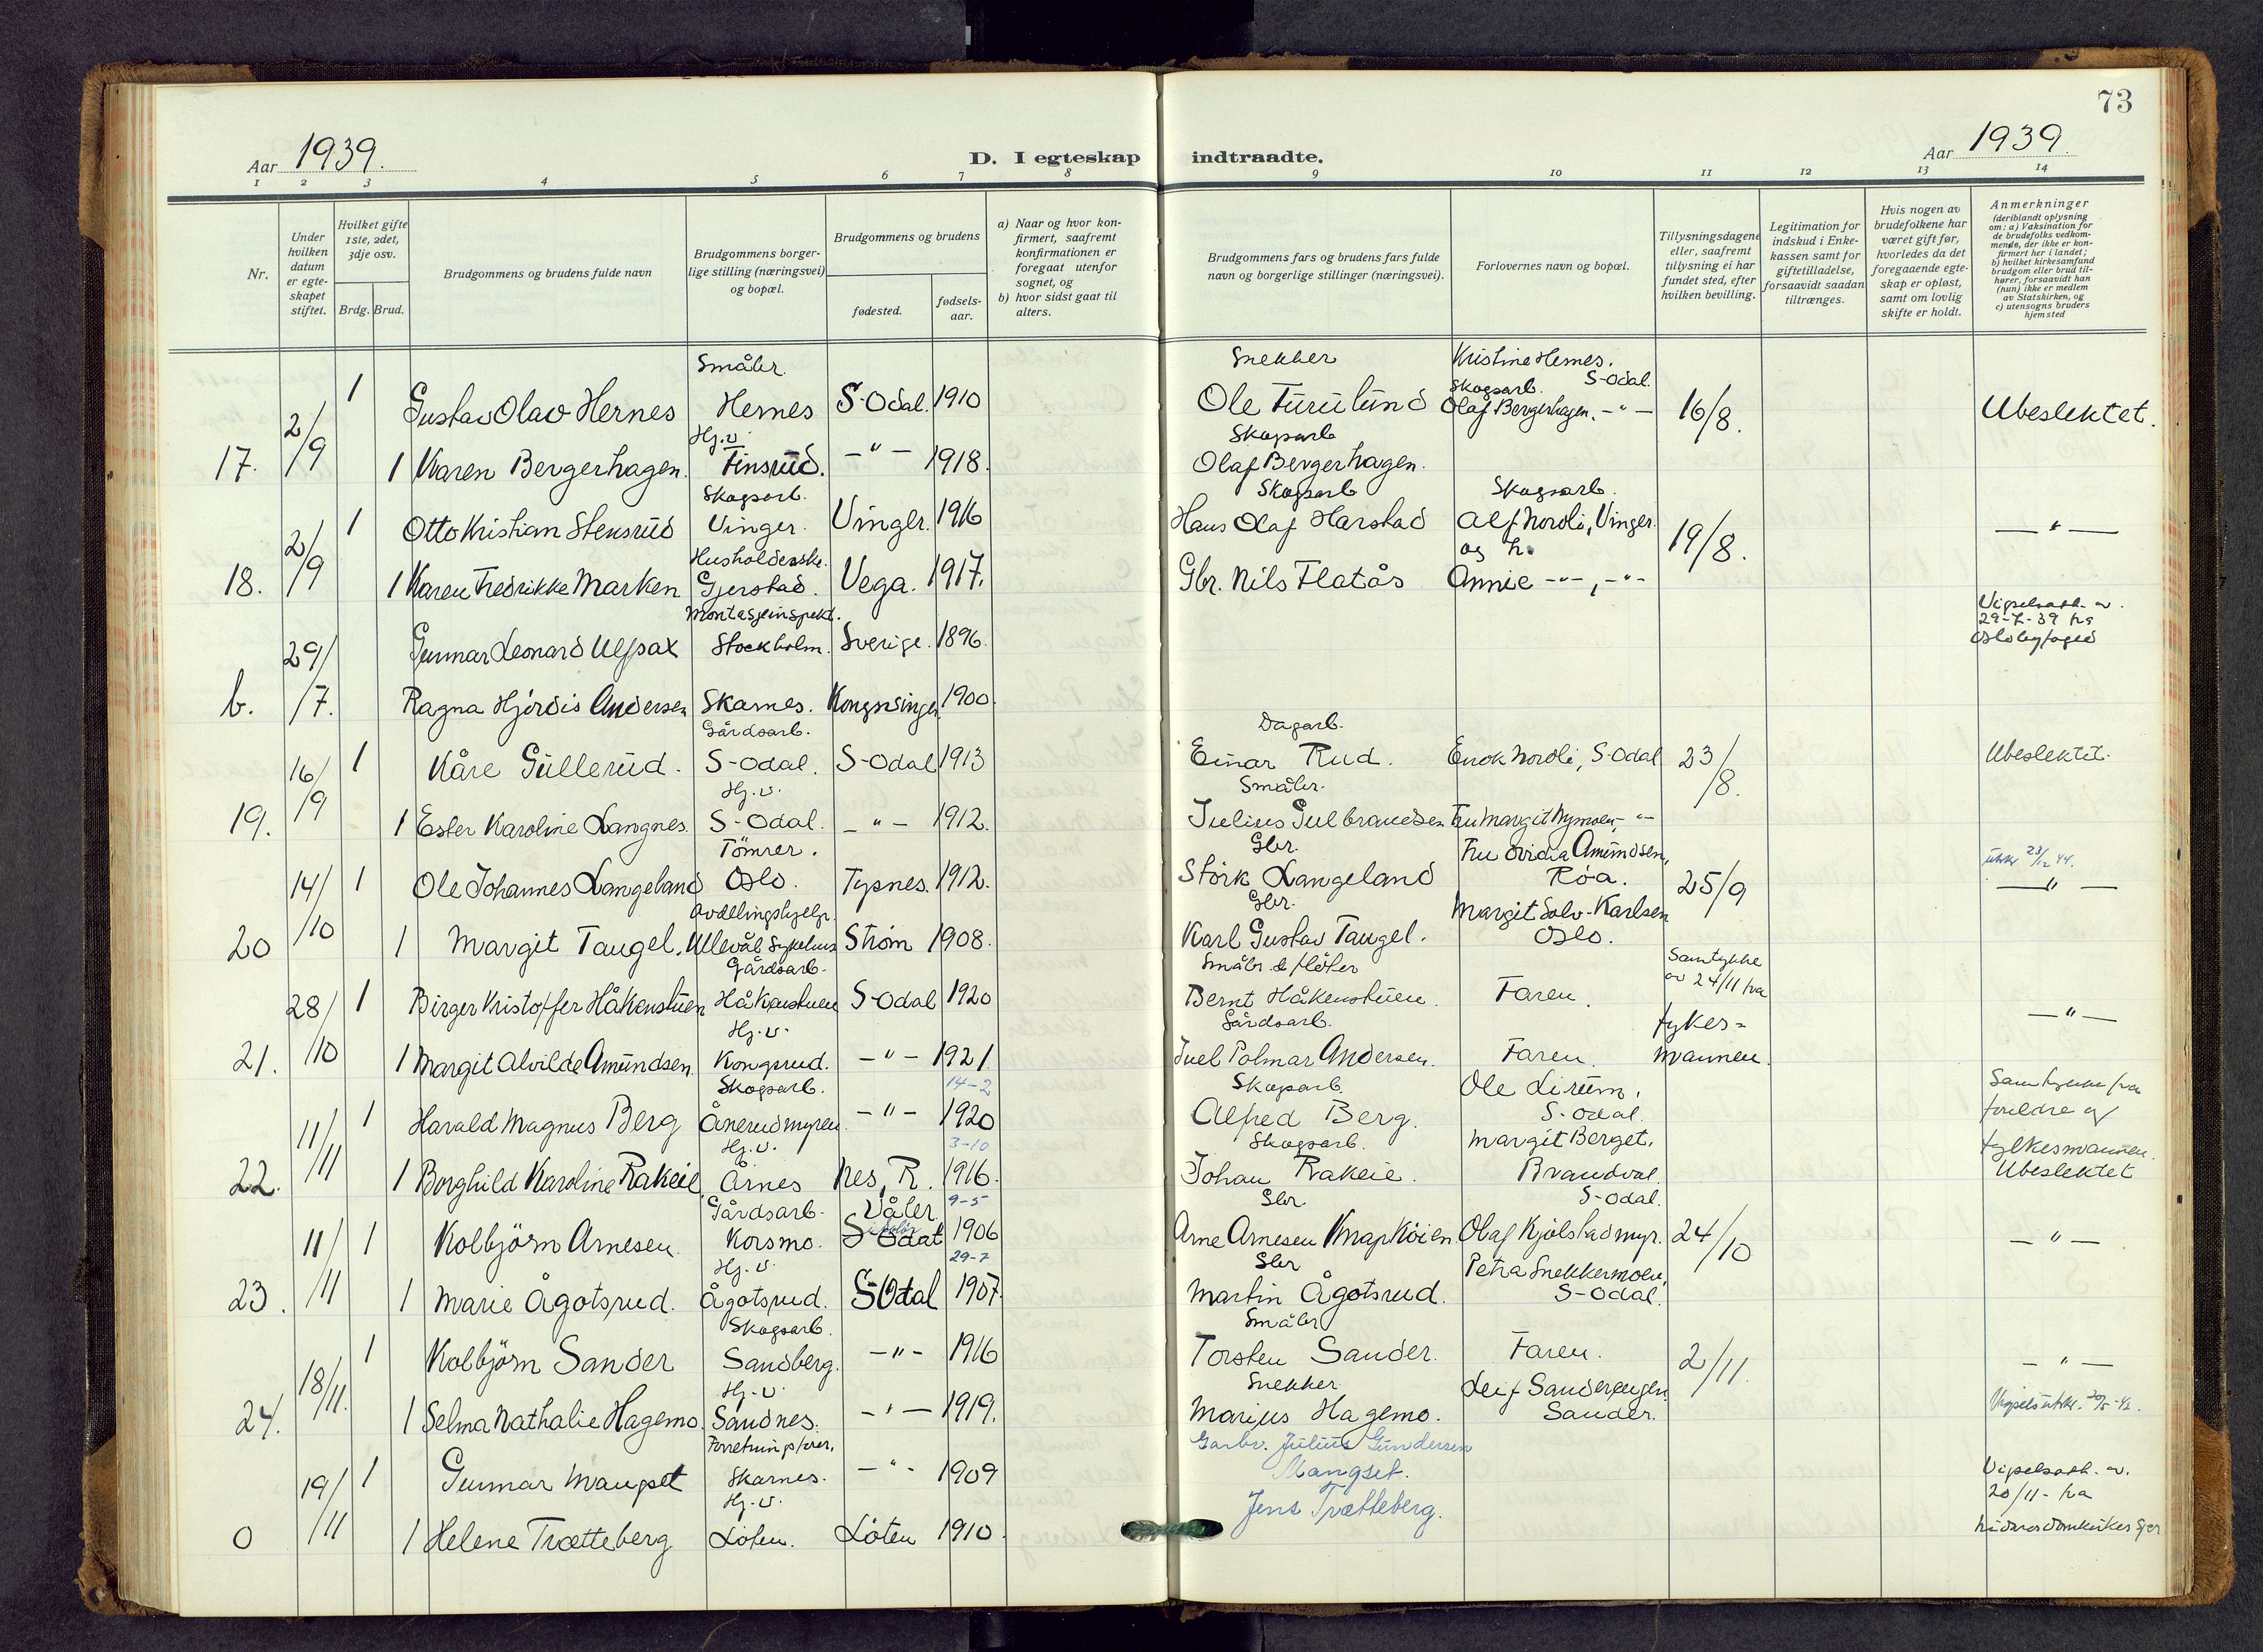 73
Aar 1939.
D. I egteskap indtraadte.
Aar 1939.
1 2 3 4 5 6 7 8 9 10 11 12 13 14
Nr.
Under hvilken datum er egteskapet stiftet.
Hvilket gifte 1ste, 2det, 3dje osv.
Brdg. Brud.
Brudgommens og brudens fulde navn
Brudgommens borgerlige stilling (næringsvei) og bopæl.
Brudgommens og brudens
fødested.
fødselsaar.
a) Naar og hvor konfirmert, saafremt konfirmationen er foregaat utenfor sognet, og
b) hvor sidst gaat til alters.
Brudgommens fars og brudens fars fulde navn og borgerlige stillinger (næringsvei).
Forlovernes navn og bopæl.
Tillysningsdagene eller, saafremt tillysning ei har fundet sted, efter hvilken bevilling.
Legitimation for indskud i Enkekassen samt for giftetilladelse, forsaavidt saadan tiltrænges.
Hvis nogen av brudefolkene har været gift før, hvorledes da det foregaaende egteskap er opløst, samt om lovlig skifte er holdt.
Anmerkninger
(deriblandt oplysning om: a) Vaksination for de brudefolks vedkommende, der ikke er konfirmert her i landet; b) hvilket kirkesamfund brudgom eller brud tilhører, forsaavidt han (hun) ikke er medlem av Statskirken, og c) utensogns bruders hjemsted
Småbr. Snekker Kristine Hernes. S-Odal.
1 Gustav Olav Hernes Hernes S-Odal. 1910 Ole Furulund Skogsarb. Olaf Bergerhagen. -"- 16/8. Ubeslektet.
17. 2/9 Hj.v. Skogsarb
1 Karen Bergerhagen. Finsrud. -"- 1918. Olaf Bergerhagen.
Skogsarb. Skogsarb Skogsarb.
1 Otto Kristian Stensrud Vinger. Vinger. 1916 Hans Olaf Harstad Alf Nordli, Vinger. -"-
18. 2/9 Husholderske. og 19/8.
1 Karen Fredrikke Marken Gjerstad. Vega. 1917. Gbr. Nils Flatås Annie -"-, -"-
Montasjeinspekt. Vigselsatt. av
29/7. Gunnar Leonard Ulfsax Stockholm. Sverige. 1896. 29-7-39 fra Oslo byfoged
b. Ragna Hjördis Andersen Skarnes. Kongsvinger. 1900.
Gårdsarb. Dagarb.
16/9 1 Kåre Gullerud. S-Odal. S-Odal 1913 Einar Rud. Enok Nordli, S-Odal 23/8. Ubeslektet.
Hj.v. Småbr.
19. 1 Ester Karoline Langnes. S-Odal. -"- 1912. Julius Gulbrandsen Fru Margit Nymoen, -"-
Tömrer. Gbr. Fru Ovidia Amundsen,
14/10 1 Ole Johannes Langeland Oslo. Tysnes. 1912. Störk Langeland Röa. 25/9 -"-
Avdelingshjelp. Gbr. Margit Solv-Karlsen
20 1 Margit Taugel. Ullevål Sykehus Ström 1908. Karl Gustav Taugel. Oslo.
Gårdsarb. Småbr. & flöter Samtykke av 24/11 fra
28/10 1 Birger Kristoffer Håkenstuen Håkenstuen S-Odal 1920 Bernt Håkenstuen. Faren. fylkes= -"-
Hj.v. Gårdsarb.
21. 1 Margit Alvilde Amundsen. Kongsrud. -"- 1921. Juel Palmar Andersen. Faren. mannen.
Skogsarb. 14-2 Skogsarb. Ole Lirum, Samtykke fra
11/11 1 Harald Magnus Berg Ånerudmyren. -"- 1920 Alfred Berg. S-Odal. foreldre og
Hj.v. 3-10 Skogsarb. Margit Berget, fylkesmannen.
22. 1 Borghild Karoline Rakeie Årnes Nes, R. 1916. Johan Rakeie. Brandval. Ubeslektet
Gårdsarb. Våler 9-5 Gbr. S-Odal.
11/11 1 Kolbjörn Arnesen. Korsmo. S-Odal 1906 Arne Arnesen Knapköien. Olaf Kjölstadmyr. 24/10 -"-
Hj.v. 29-7 Gbr Petra Snekkermoen,
23. 1 Marie Ågotsrud. Ågotsrud. S-Odal 1907. Martin Ågotsrud. S-Odal.
Skogsarb. Småbr
18/11. 1 Kolbjörn Sander Sandberg. -"- 1916 Torsten Sander. Faren. 2/11. -"-
Hj.v. Snekker Leif Sanderengen
24. 1 Selma Nathalie Hagemo. Sandnes. -"- 1919. Marius Hagemo. Sander.
Forretningsförer. Garbr. Julius Gundersen
19/11 1 Gunnar Mangset Skarnes. -"- 1909 Mangset. Vigselsatt. av.
Hj.v. 20/11- fra
0 1 Helene Trætteberg Löten. Löten 1910. Jens Trætteberg.